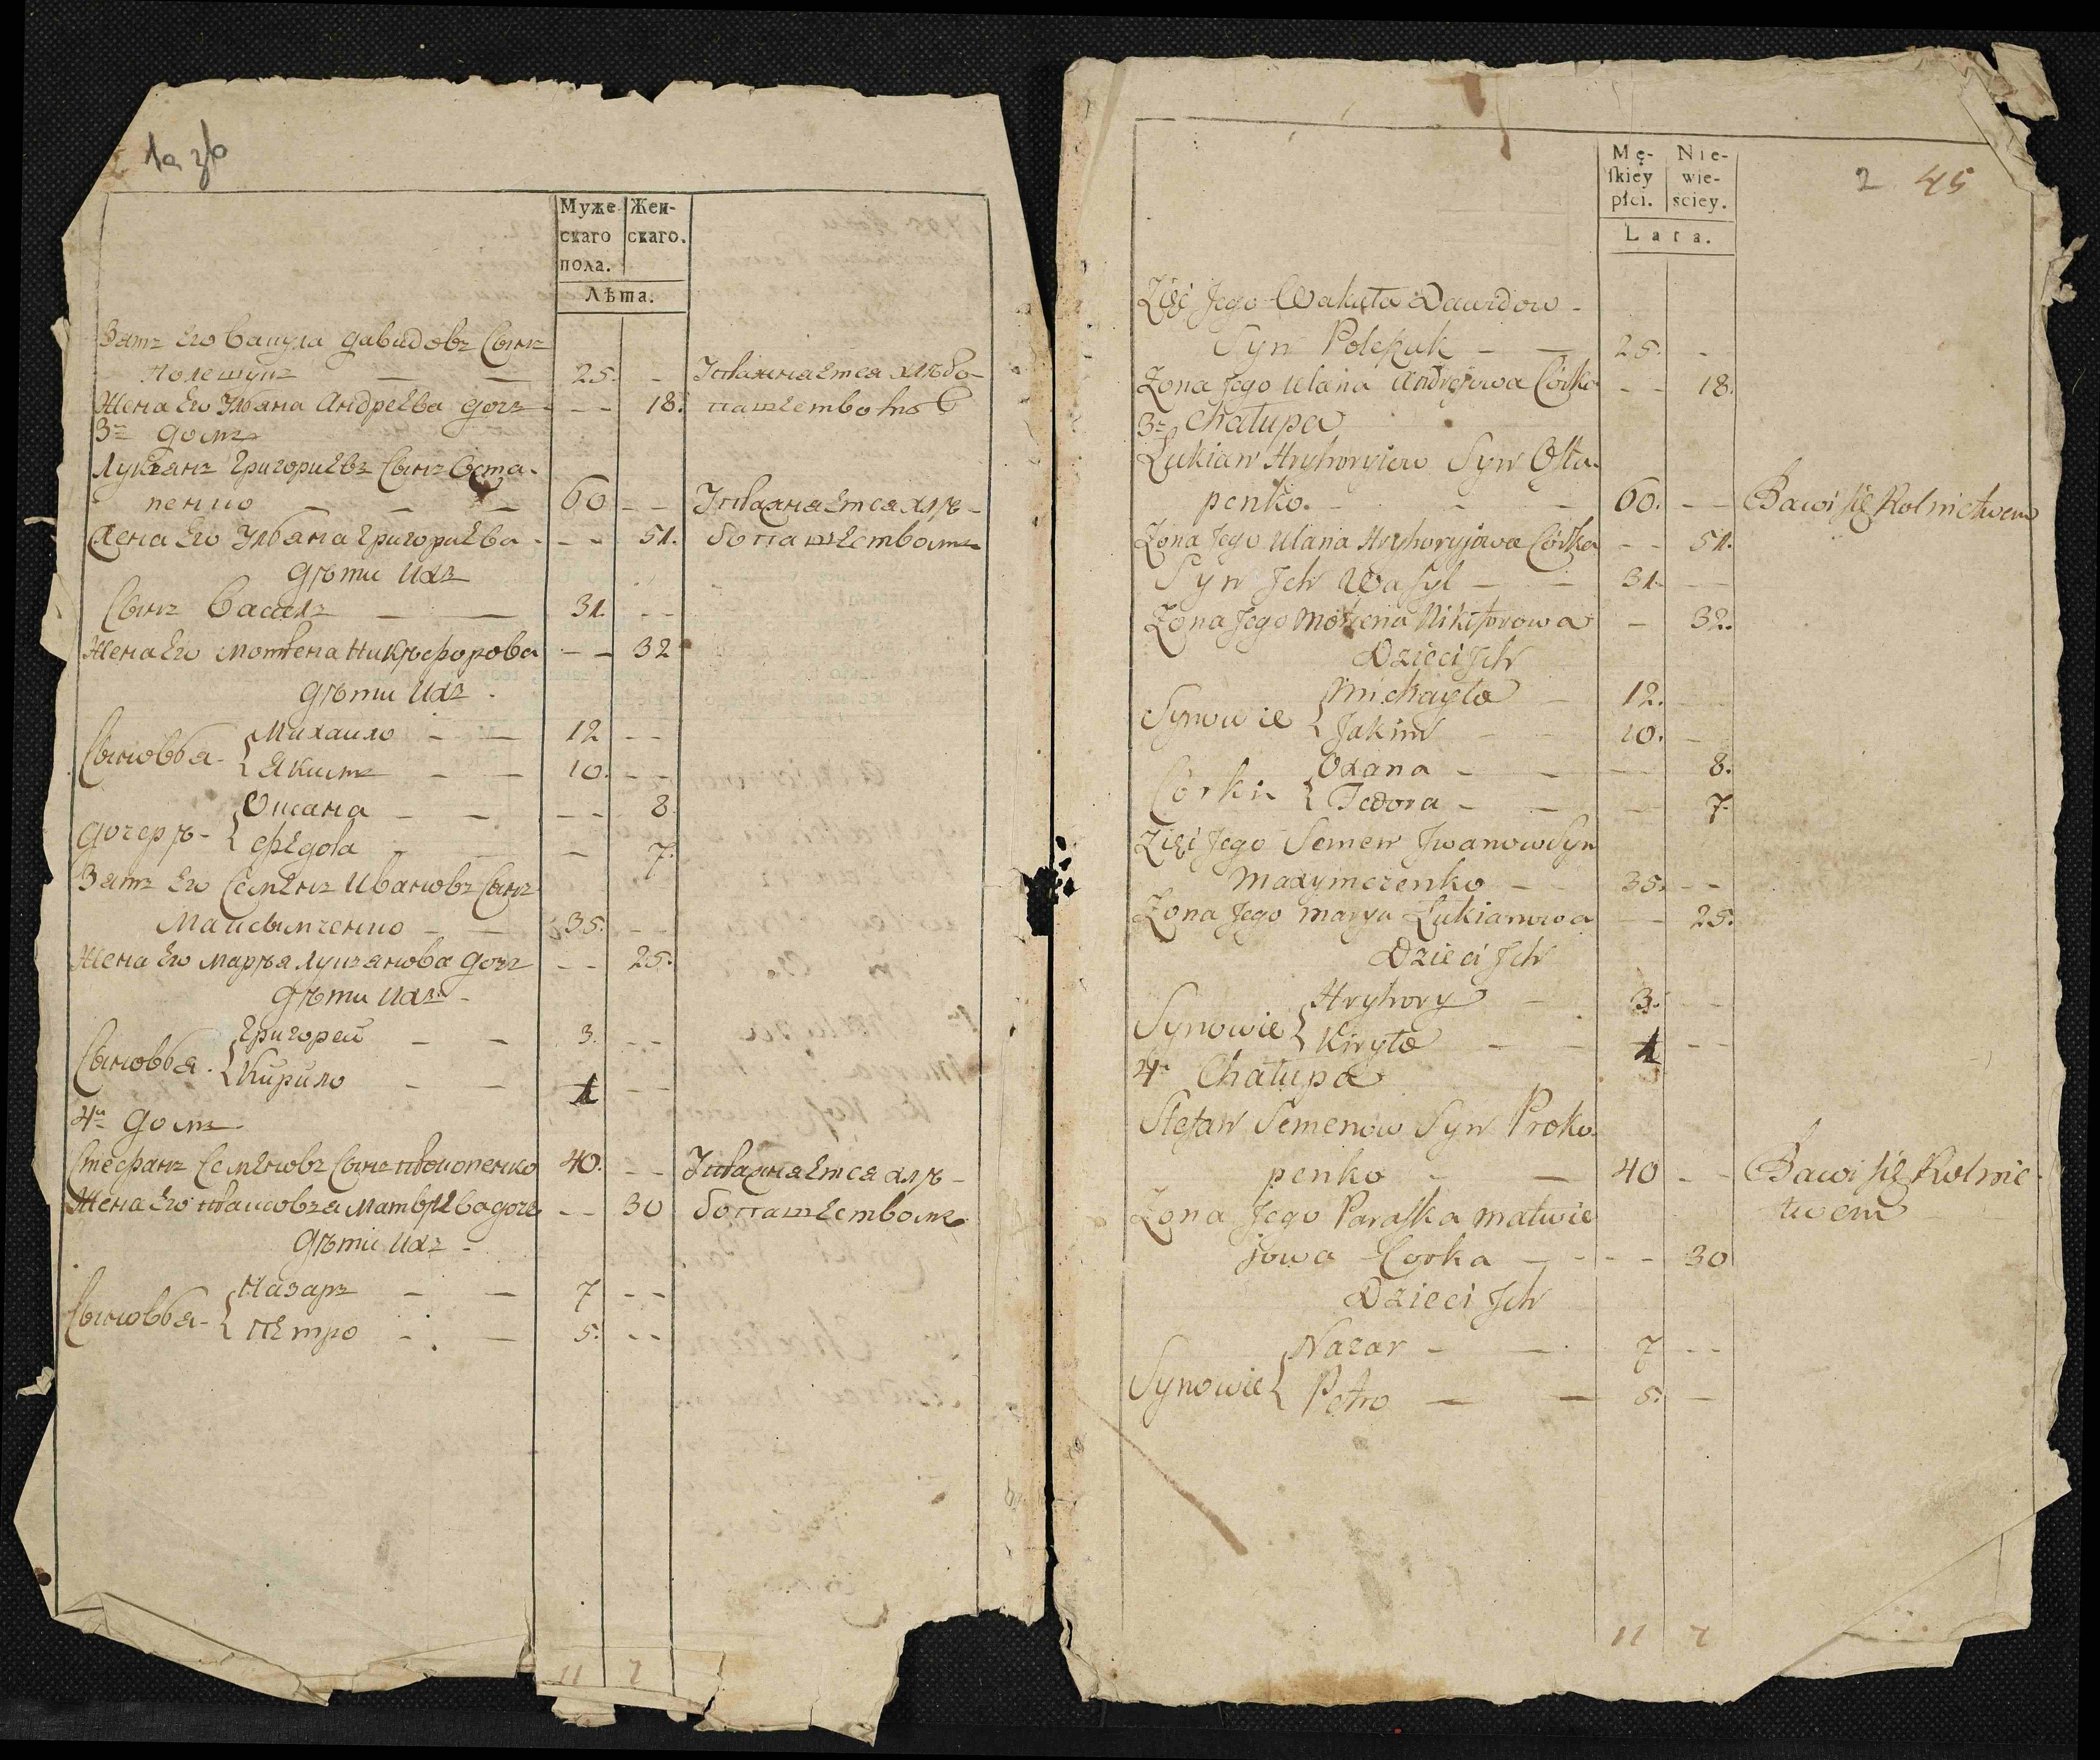 1a зв
Муже Жен-
скаго скаго.
пола.
Лѣта.
Зять Его Вакула Давидовъ Сынъ
Полешукъ — — 25. -
Жена Его Ульяна Андреева дочь - - - 18.
3й домъ
Лукьянъ Григориевъ Сынъ Оста-
пенко — — — 60 - - Упражняется хлѣ-
бопашествомъ
Жена Его Ульяна Григориева - - - 51.
Дѣти ихъ
Сынъ Василь — — 31. - -
Жена Его Мотрена Никифорова - - 32
Дѣти ихъ
Сыновья { Михайло — — 12 - -
Якимъ — — 10. - -
Дочерѣ { Оксана — — - - 8.
Федора — — - 7.
Зять Его Семенъ Ивановъ Сынъ
Максымченко — — 35. - -
Жена Его Марья Лукьянова дочь - - 25.
Дѣти ихъ -
Сыновья { Григорей — — 3. - -
Кирило — — 1 - -
4й домъ
Стефанъ Семеновъ Сынъ Прокопенко 40. - - Упражняется хлѣ-
бопашествомъ
Жена Его Матвѣева дочь - - 30
Дѣти ихъ -
Сыновья { Назаръ — — 7 - -
Петро — — 5. - -
11 7
2 45
Mę- Nie-
skiey wie-
płci. sciey.
Lata.
Zięć Jego Wakuła Dawidow -
Syn Poleszuk — — 25. -
Zona Jego Ulana Andrejowa Córka - - 18.
3a Chałupa
Łukian Hryhoryiow Syn Osta-
penko. - - - 60. - - Bawi się Rolnictwem
Zona Jego Ulana Hryhoryjowa Córka - - 51.
Syn Jch Wasyl — — 31. - -
Zona Jego Motrena Nikiforowa - 32.
Dzieci Jch
Synowie { Michayło — 12. - -
Jakim — — 10. -
Córki { Oxana — — - - 8.
Fedora — — - 7.
Zięć Jego Semen Jwanow Syn
Maxymczenko — — 35. - -
Zona Jego Marya Łukianowa - - 25.
Dzieci Jch
Synowie { Hryhory — 3. - -
Kiryło — — 1 - -
4a Chałupa
Stefan Semenow Syn Proko-
penko - — 40 - - Bawi się Rolnic-
twem
Zona Jego Paraska Matwie
jowa Corka — - - - 30
Dzieci Jch
Synowie { Nazar — — 7 - -
Petro — — 5. -
11 7